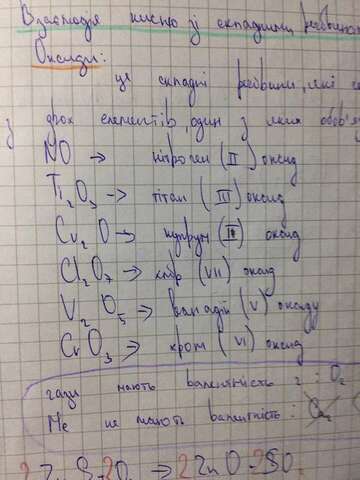 Взаємодія кисню зі складними речовинами
Оксиди:
це складні речовини, які
з двох елементів, один з яких
NO → нітроген (II) оксид
Ti₂O₃ → тітан (III) оксид
Cu₂O → купрум (II) оксид
Cl₂O₇ → хлор (VII) оксид
V₂O₅ → ванадій (V) оксиду
CrO₃ → хром (VI) оксид
гази мають валентність 2 : O₂
Me не мають валентність :
→ 2ZnO 2SO